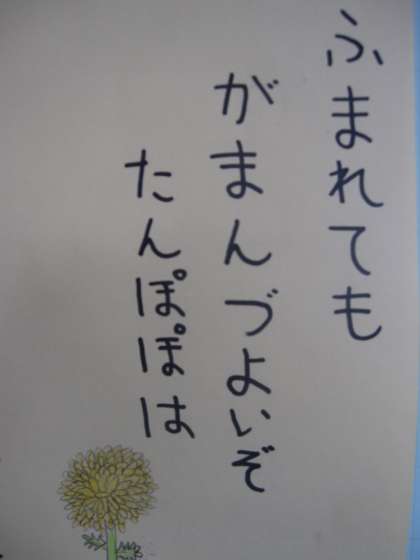 ふまれても
がまんづよいぞ
たんぽぽは